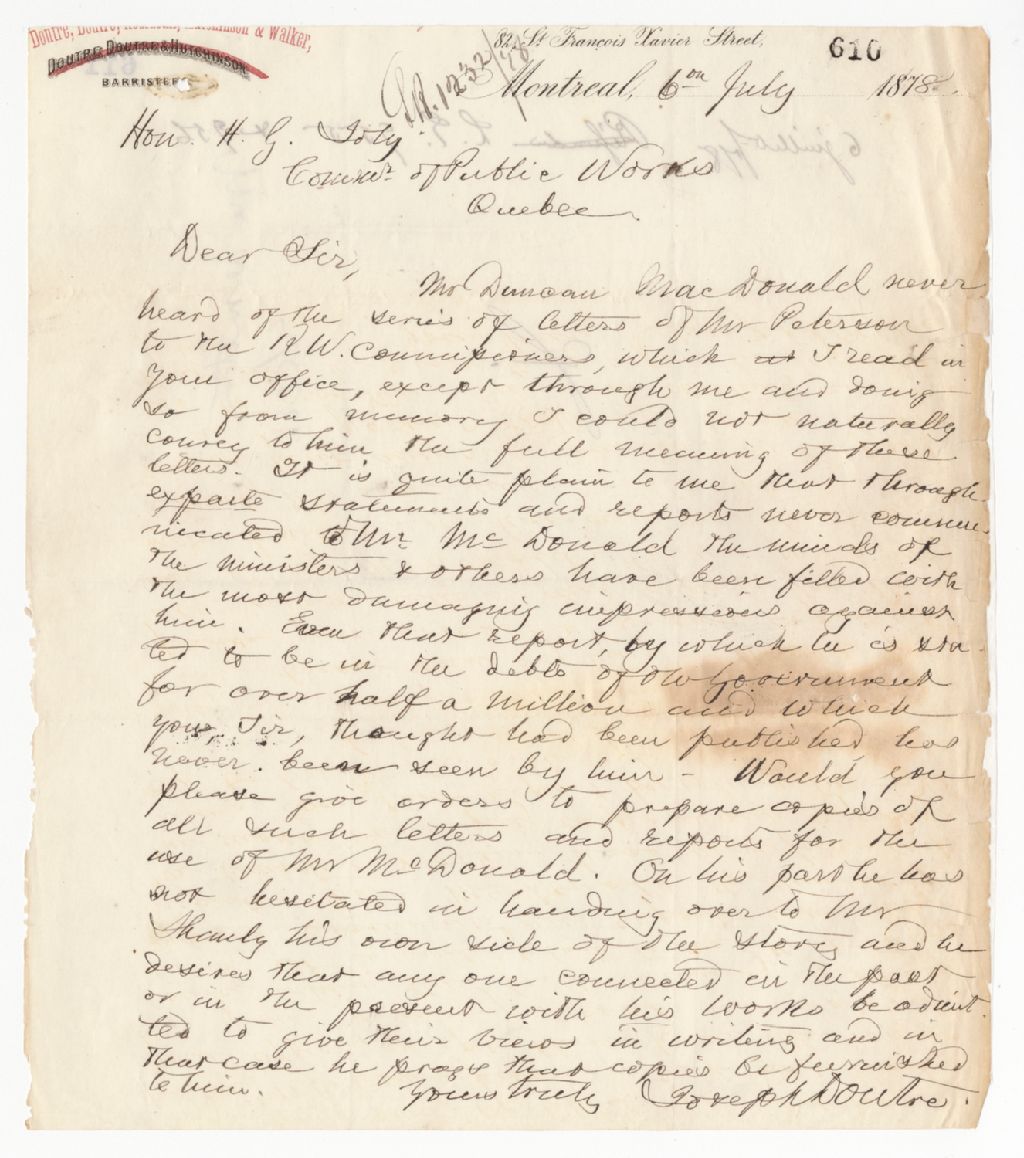 Doutre, Doutre, Robidoux, Hutchinson & Walker,
DOUTRE, DOUTRE & HUTCHINSON
BARRISTERS
82, St. François Xavier Street,
610
1232/78
Montreal, 6th July 1878.
Hon. H. G. Joly
Commr. of Public Works
Quebec.
Dear Sir,
Mr Duncan MacDonald never
heard of the series of letters of Mr Peterson
to the R.W. Commissioners, which I read in
your office, except through me and doing
so from memory I could not naturally
convey to him the full meaning of these
letters. It is quite plain to me that through
exparte statements and reports never commu-
nicated to Mr. McDonald the minds of
the ministers & others have been filled with
the most damaging impressions against
him. Even that report, by which he is sta-
ted to be in the debts of the Government
for over half a million and which
you, Sir, thought had been published has
never been seen by him - Would you
please give orders to prepare copies of
all such letters and reports for the
use of Mr McDonald. On his part he has
not hesitated in handing over to Mr
Shanly his own side of the story and he
desires that any one connected in the past
or in the present with his works be admit-
ted to give their views in writing and in
that case he prays that copies be furnished
to him.
Yours truly Joseph Doutre.